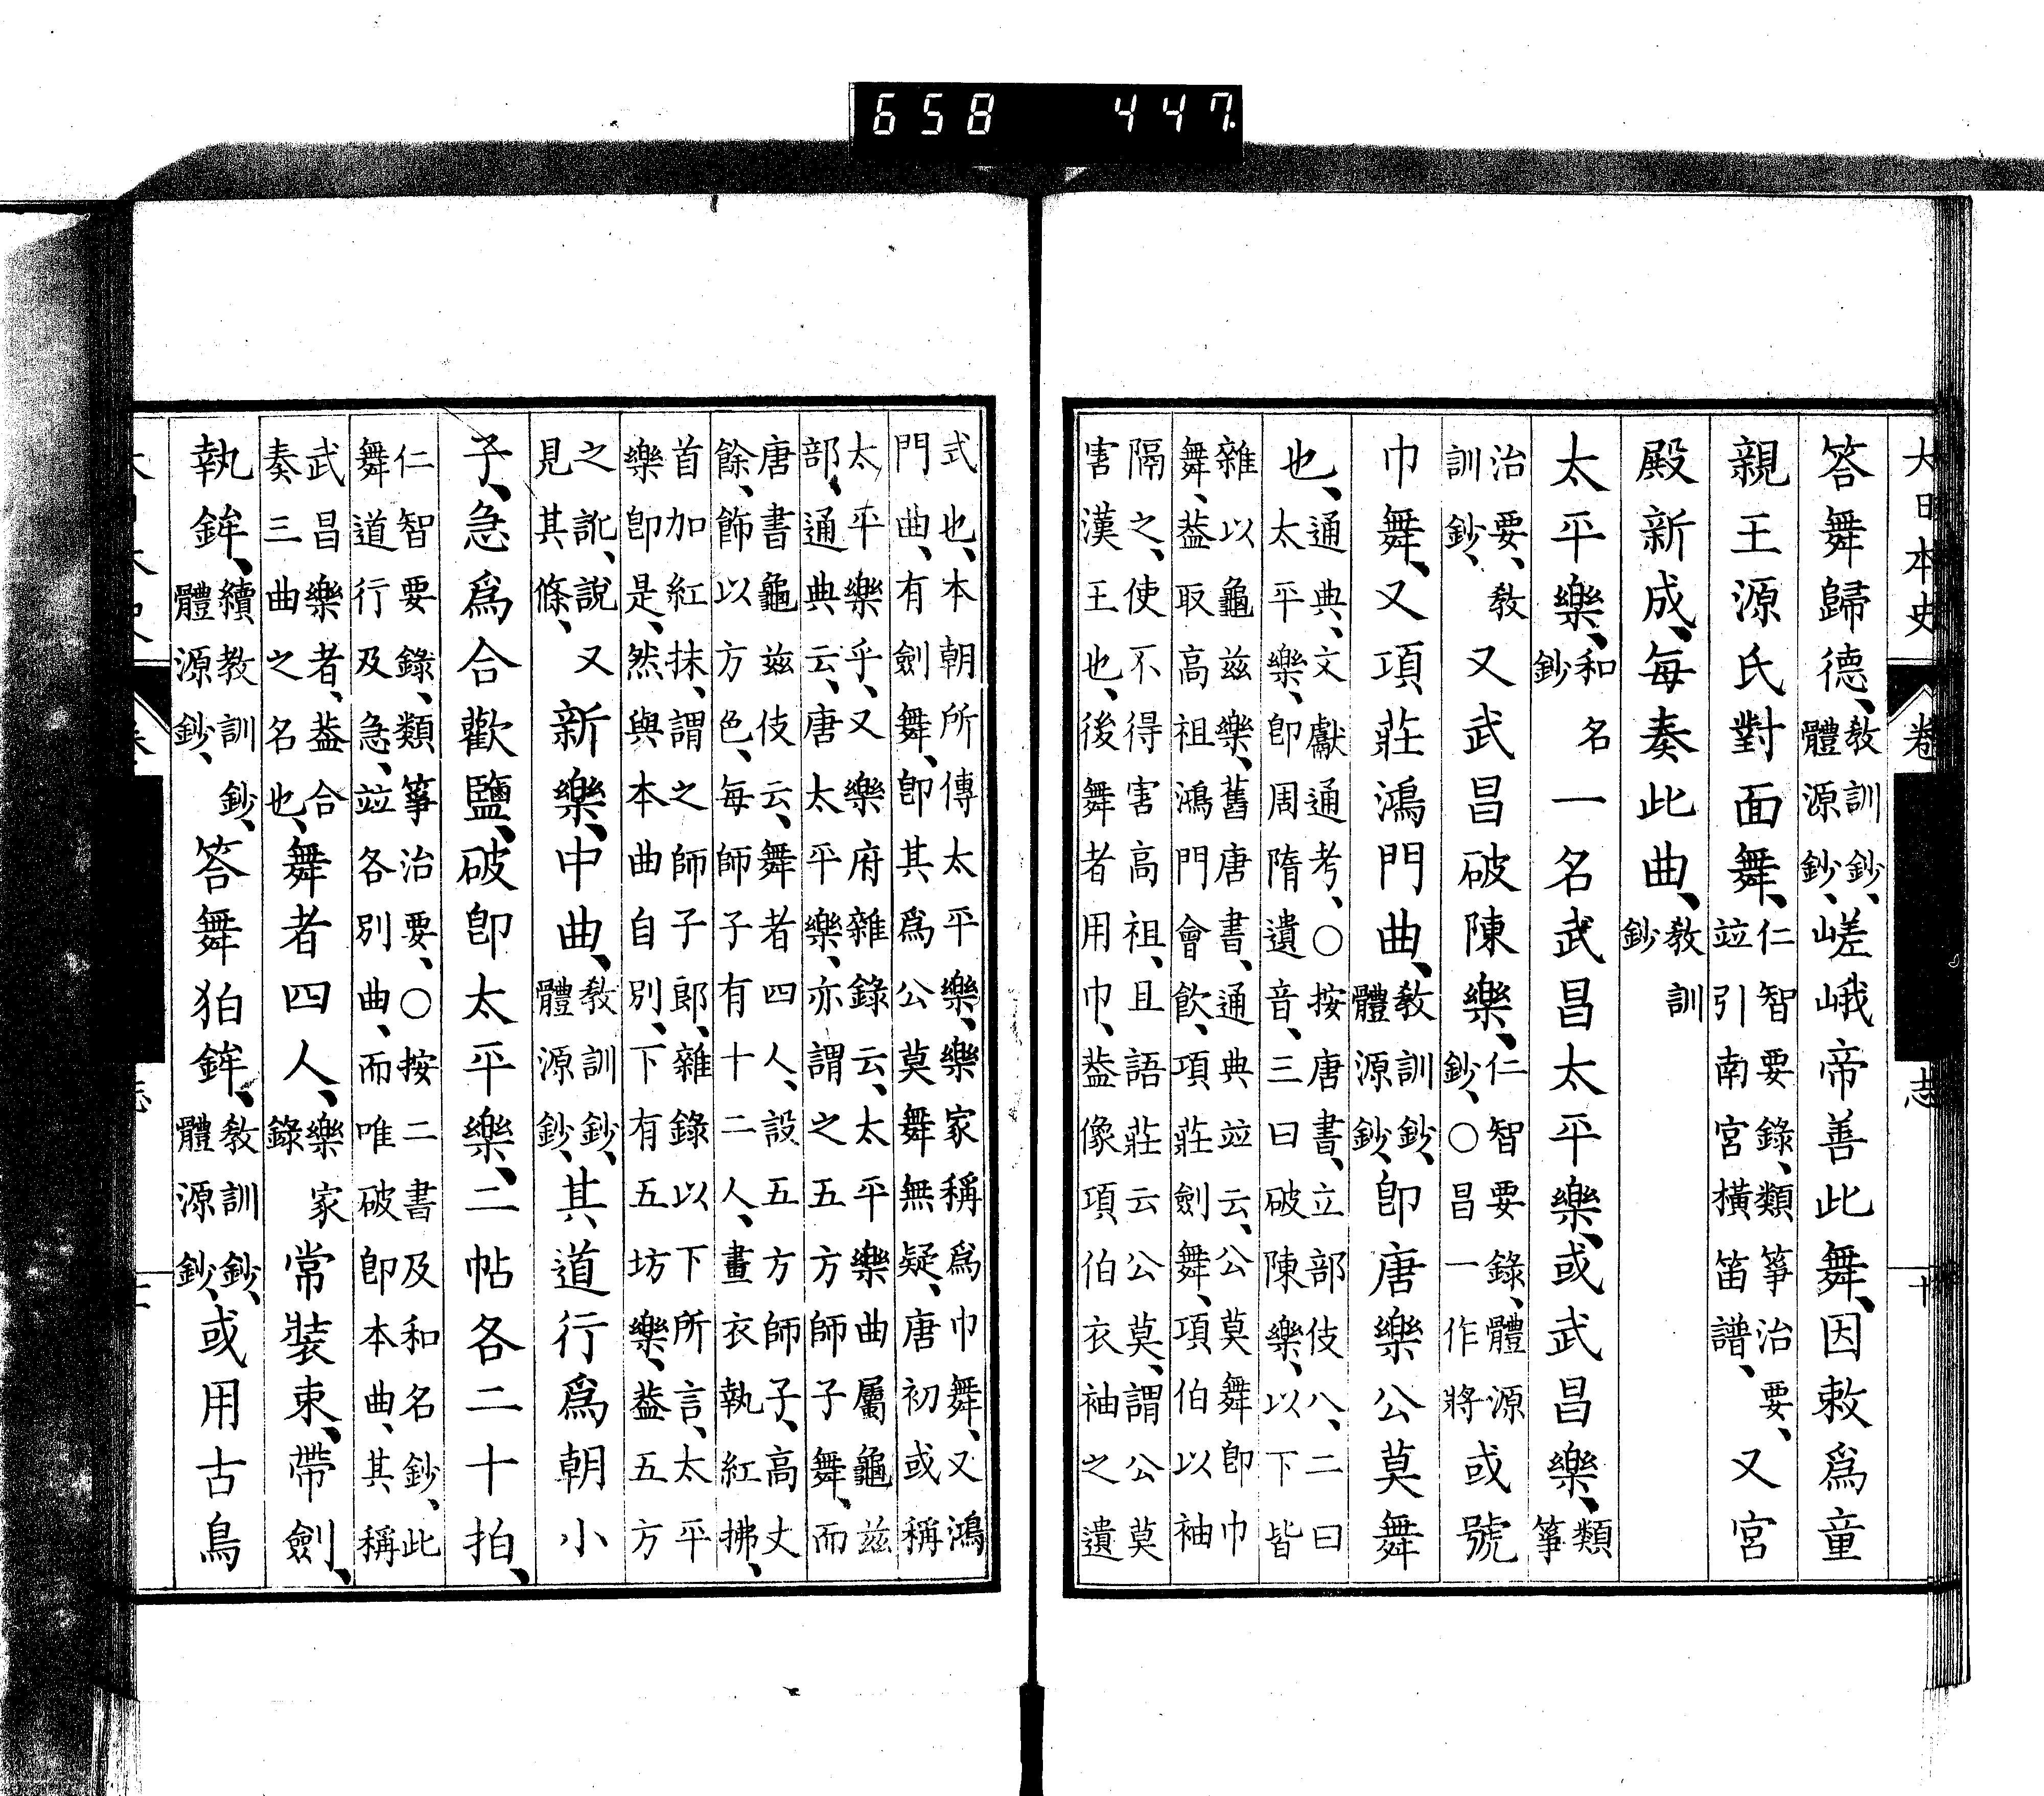 658 447
大日本史 卷 志 十
答舞歸德、教訓鈔、體源鈔、嵯峨帝善此舞、因敕爲童
親王源氏對面舞、仁智要錄、類箏治要、竝引南宮橫笛譜、又宮
殿新成、每奏此曲、教訓鈔
太平樂、和名鈔一名武昌太平樂、或武昌樂、類箏
治要、教訓鈔、又武昌破陳樂、仁智要錄、體源鈔、○昌一作將或號
巾舞、又項莊鴻門曲、教訓鈔、體源鈔、卽唐樂公莫舞
也、通典、文獻通考、○按唐書、立部伎八、二曰太平樂、卽周隋遺音、三曰破陳樂、以下皆
雜以龜茲樂、舊唐書、通典竝云、公莫舞卽巾舞、葢取高祖鴻門會飲、項莊劍舞、項伯以袖
隔之、使不得害高祖、且語莊云公莫、謂公莫害漢王也、後舞者用巾、葢像項伯衣袖之遺
式也、本朝所傳太平樂、樂家稱爲巾舞、又鴻門曲、有劍舞、卽其爲公莫舞無疑、唐初或稱
太平樂乎、又樂府雜錄云、太平樂曲屬龜茲部、通典云、唐太平樂、亦謂之五方師子舞、而
唐書龜茲伎云、舞者四人、設五方師子、高丈餘、飾以方色、每師子有十二人、畫衣執紅拂、
首加紅抹、謂之師子郎、雜錄以下所言、太平樂卽是、然與本曲自別、下有五坊樂、葢五方
之訛、說見其條、又新樂、中曲、教訓鈔、體源鈔、其道行爲朝小
子、急爲合歡鹽、破卽太平樂、二帖各二十拍、
仁智要錄、類箏治要、○按二書及和名鈔、此舞道行及急、竝各別曲、而唯破卽本曲、其稱
武昌樂者、葢合奏三曲之名也、舞者四人、樂家錄常裝束、帶劍、
執鉾、續教訓鈔、體源鈔、答舞狛鉾、教訓鈔、體源鈔、或用古鳥